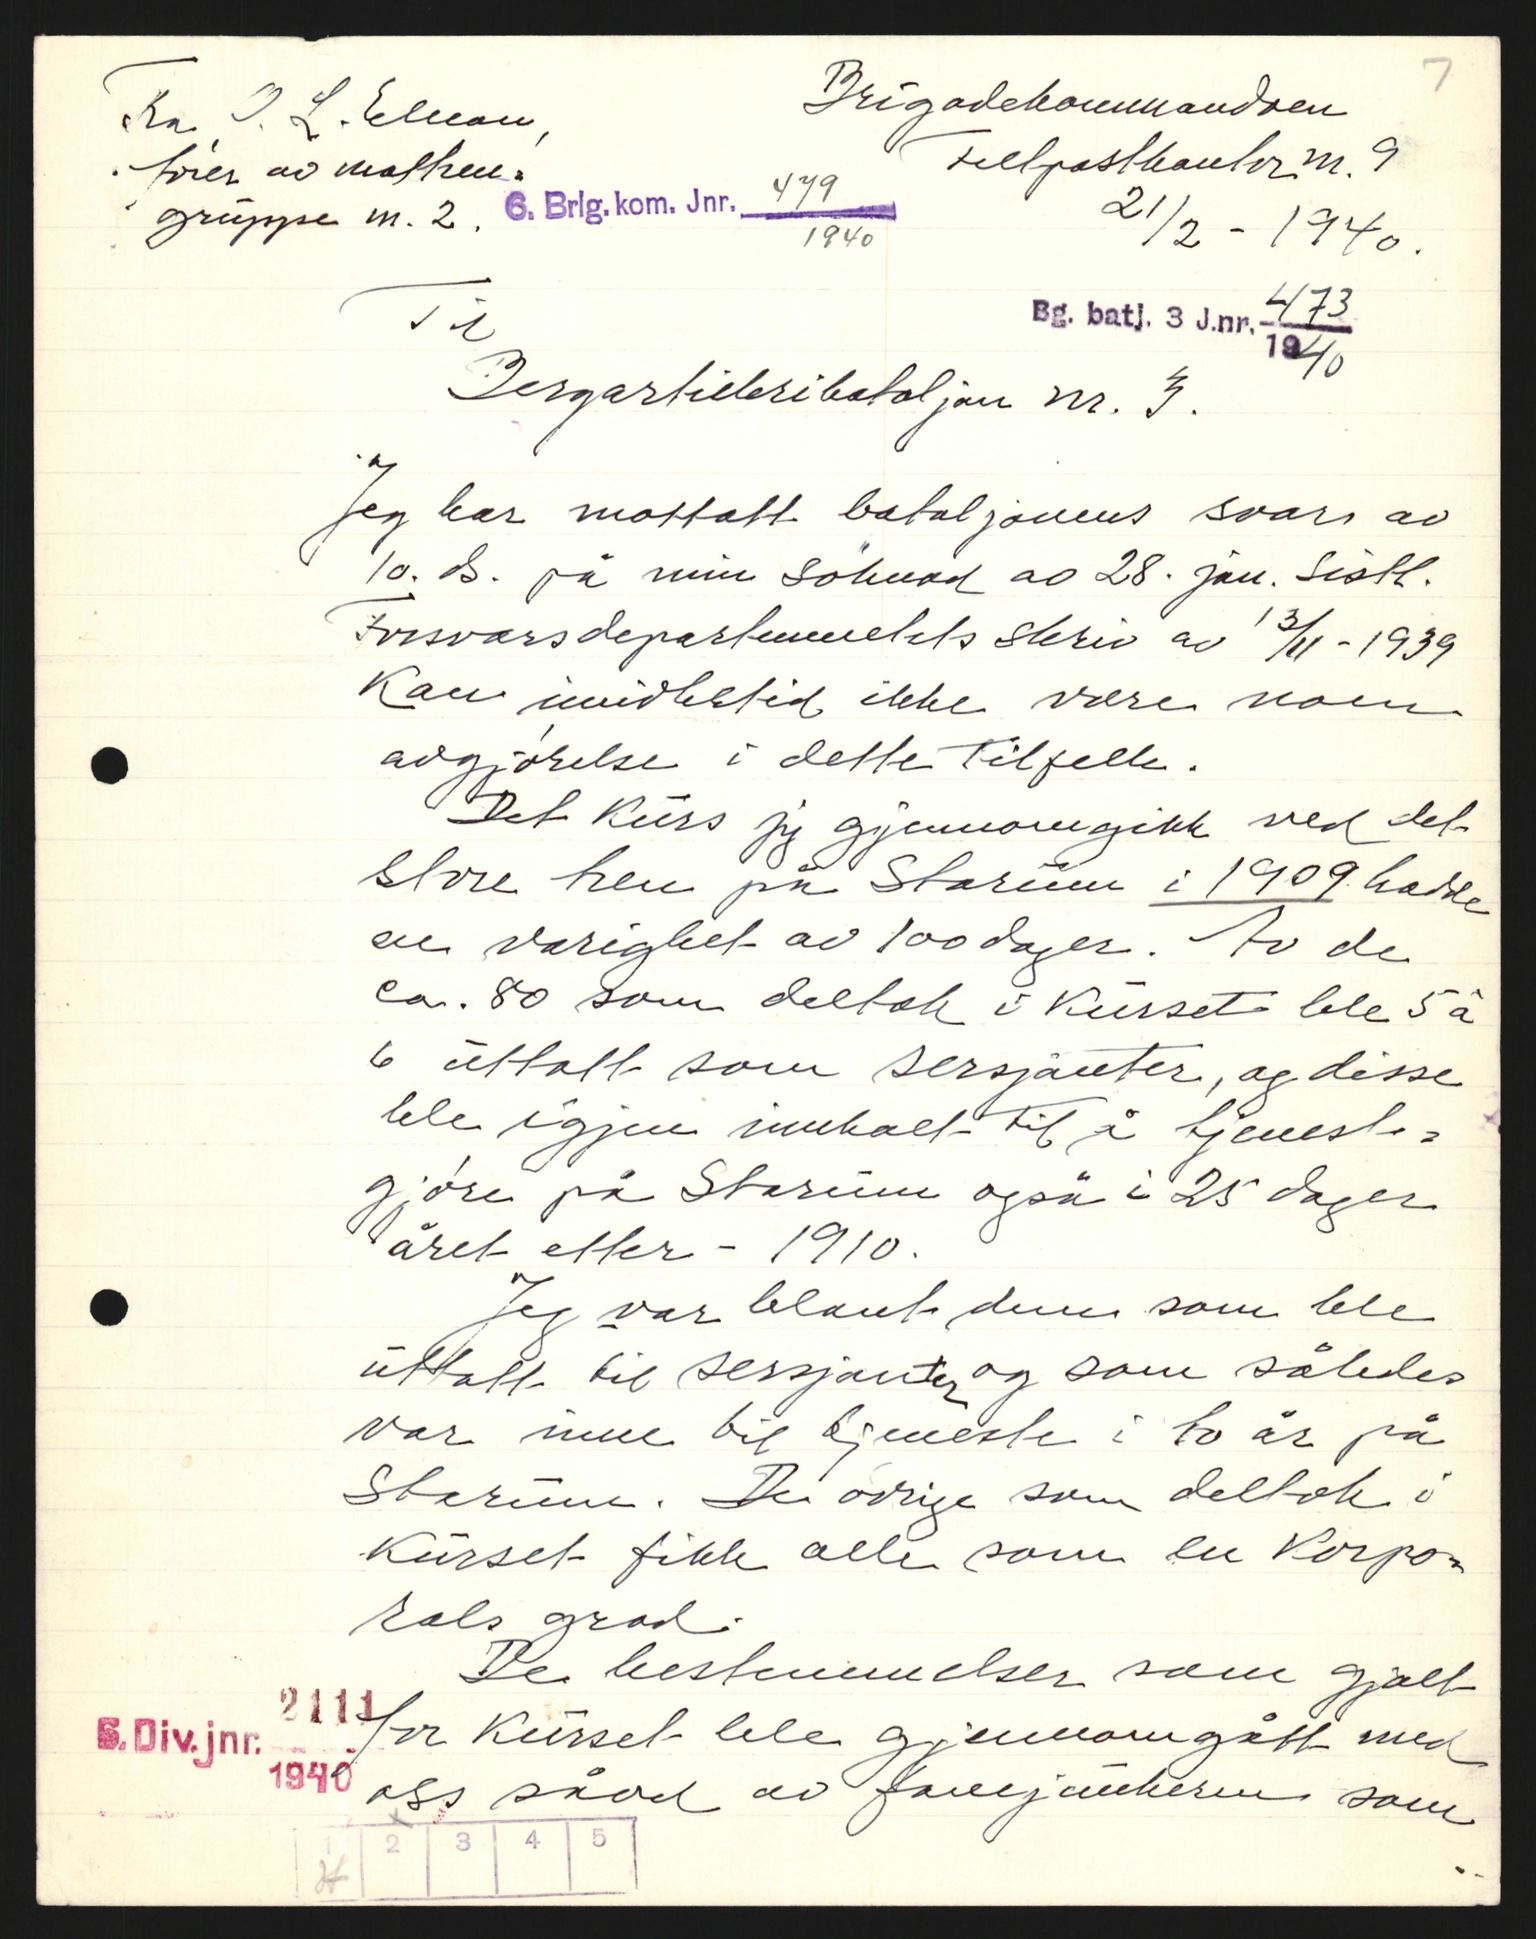 7
Fra O. L. Elman,
fører av mathen=
gruppe nr. 2.
Brigadekommandoen
Feltpostkontor nr. 9
21/2 - 1940.
6. Brig. kom. Jnr. 479
1940
Bg. batj. 3 J.nr. 473
1940
Til
Bergartilleribataljon nr. 3.
Jeg har mottatt bataljonens svar av
10. ds. på min søknad av 28. jan. sistl.
Forsvarsdepartementets skriv av 13/11 - 1939
kan imidlertid ikke være noen
avgjørelse i dette tilfelle.
Det kurs jeg gjennomgikk ved det
store tren på Starum i 1909 hadde
en varighet av 100 dager. Av de
ca. 80 som deltok i kurset ble 5 à
6 uttatt som sersjanter, og disse
ble igjen innkalt til å tjeneste=
gjøre på Starum også i 25 dager
året etter - 1910.
Jeg var blant dem som ble
uttatt til sersjanter og som således
var inne til tjeneste i to år på
Starum. De øvrige som deltok i
kurset fikk alle som en korpo=
rals grad.
De bestemmelser som gjalt
for kurset ble gjennomgått med
oss såvel av fanejunkeren som
6. Div. jnr. 2111
1940
1 2 3 4 5